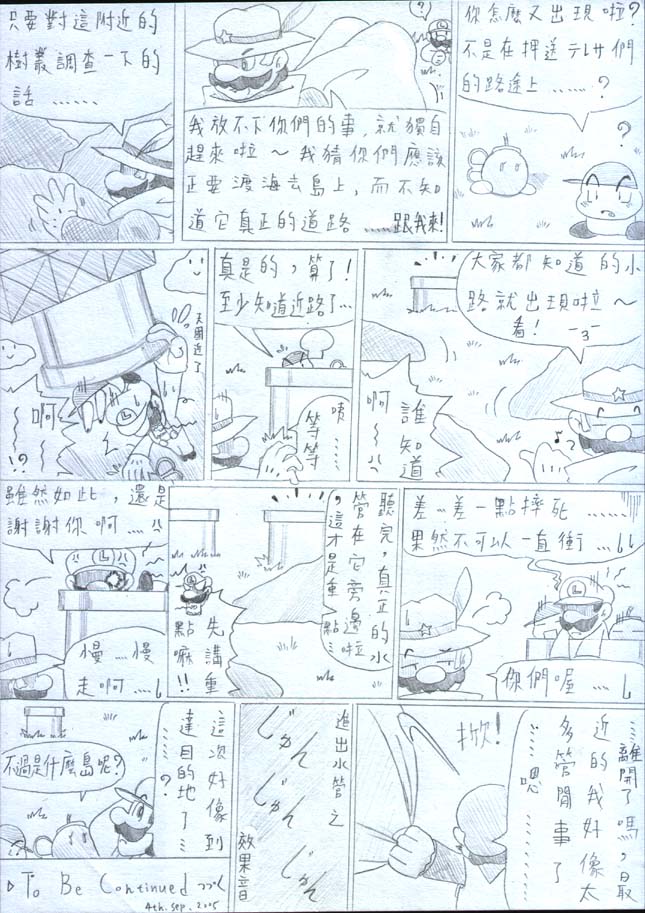 你怎麼又出現啦?
不是在押送テレサ們
的路途上……?
?
?
我放不下你們的事,就獨自
趕來啦～我猜你們應該
正要渡海去島上,而不知
道它真正的道路……跟我來!
只要對這附近的
樹叢調查一下的
話……
大家都知道的小
路就出現啦～
看!
誰知道
啊～～
真是的,算了!
至少知道近路了…
咦……
等等
天國近了
啊～～!?
L
差…差一點摔死……
果然不可以一直衝…
L
你們喔…
聽完,真正的水
管在它旁邊
,這才是重點啦…
先講重
點嘛!!
雖然如此,還是
謝謝你啊…
L
慢…慢
走啊…
離開了嗎,最
近的我好像太
多管閒事了
……嗯……
掀!
進出水管之
じゅん
じゅん
じゅん
效果音
這次好像到
達目的地了……?
不過是什麼島呢?
To Be Continued つづく
4th. sep. 2005